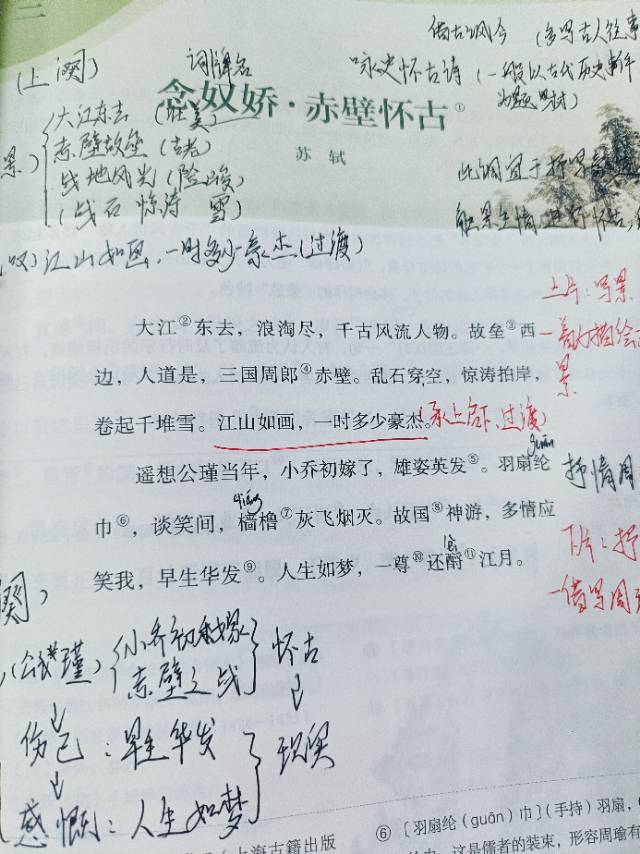 二
借古讽今（多写古人往事
（上阕）
词牌名
咏史怀古诗（一般以古代历史事件
为题材）
念奴娇·赤壁怀古①
苏 轼
大江东去（壮美）
赤壁故垒（古老）
战地风光（险峻）
景）
惊涛 雪）
此调宜于抒写
江山如画，一时多少豪杰（过渡）
上片：写景
大江②东去，浪淘尽，千古风流人物。故垒③西
边，人道是，三国周郎④赤壁。乱石穿空，惊涛拍岸，
景
卷起千堆雪。江山如画，一时多少豪杰。
（承上启下，过渡）
遥想公瑾当年，小乔初嫁了，雄姿英发⑤。羽扇纶
guān
抒情周
巾⑥，谈笑间，樯橹⑦灰飞烟灭。故国⑧神游，多情应
qiáng
下片：抒
笑我，早生华发⑨。人生如梦，一尊⑩还酹⑪江月。
lèi
一借写周
（公瑾）
小乔初嫁
赤壁之战
怀古
伤己：早生华发
现实
感慨：人生如梦
上海古籍出版
⑥［羽扇纶（guān）巾］（手持）羽扇，
巾。这是儒者的装束，形容周瑜有